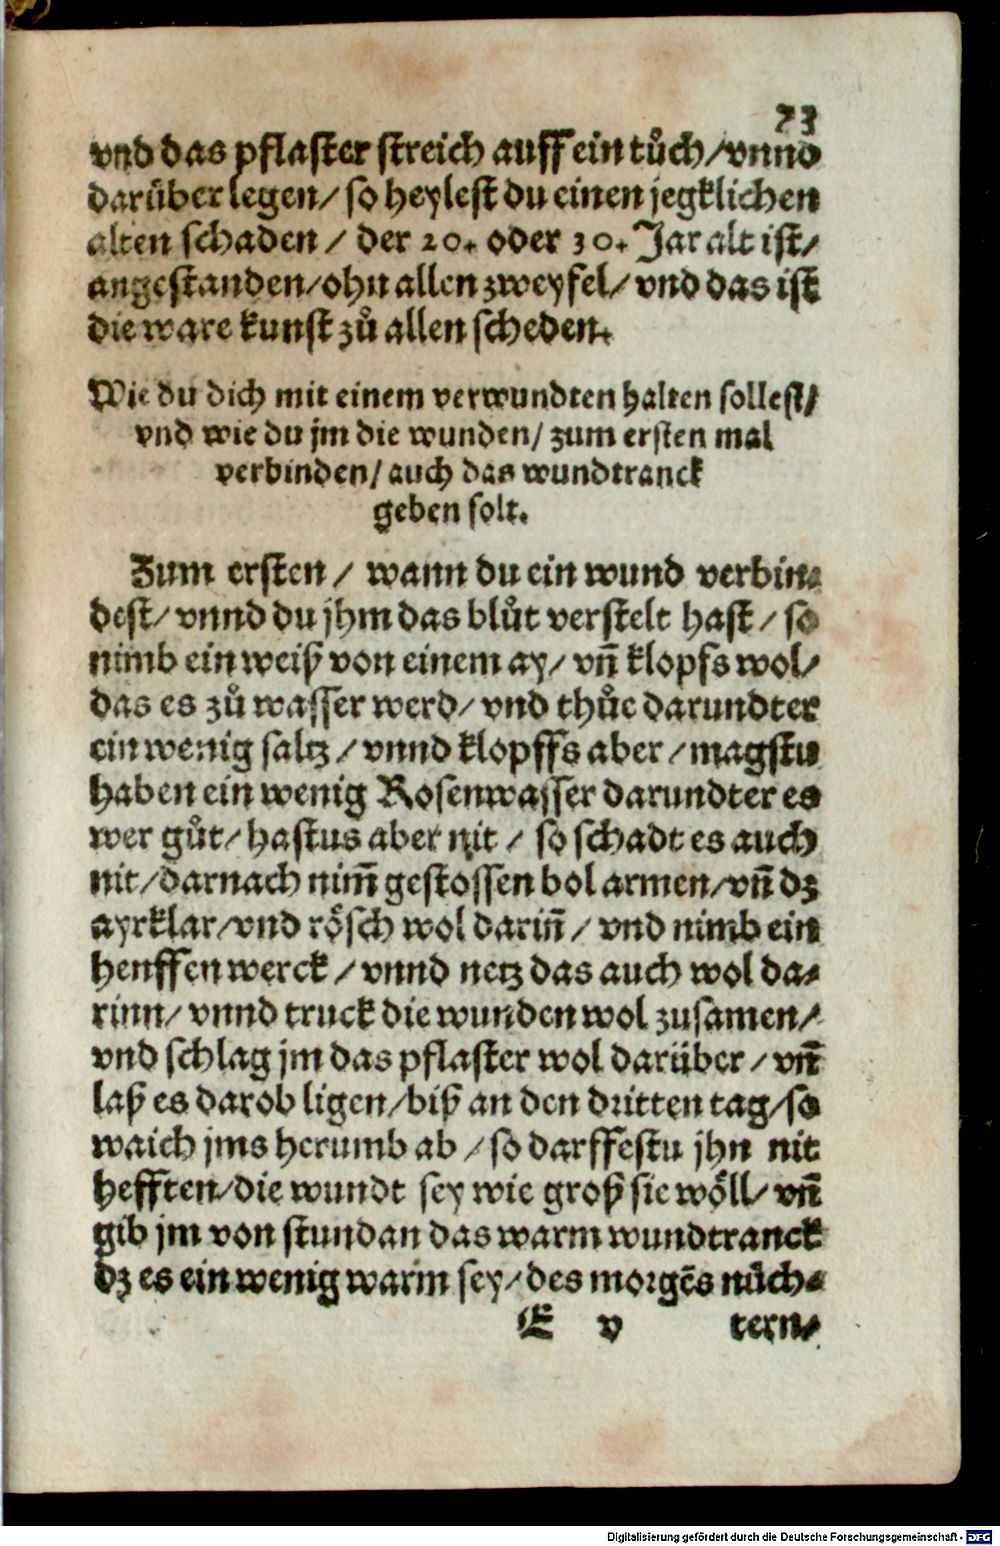 73
vnd das pflaster streich auff ein tůch/vnnd
darüber legen/ so heylest du einen jegklichen
alten schaden / der 20. oder 30. Jar alt ist/
angestanden/ohn allen zweyfel/ vnd das ist
die ware kunst zů allen scheden.
Wie du dich mit einem verwundten halten sollest/
vnd wie du jm die wunden/ zum ersten mal
verbinden/ auch das wundtranck
geben solt.
Zum ersten / wann du ein wund verbin-
dest/ vnnd du jhm das blůt verstelt hast / so
nimb ein weiß von einem ay/ vñ klopfs wol/
das es zů wasser werd/ vnd thůe darundter
ein wenig saltz / vnnd klopffs aber / magstu
haben ein wenig Rosenwasser darundter es
wer gůt/ hastus aber nit / so schadt es auch
nit/darnach nim̃ gestossen bol armen/vñ dz
ayrklar/vnd rösch wol dariñ / vnd nimb ein
henffen werck / vnnd netz das auch wol da-
rinn/ vnnd truck die wunden wol zusamen/
vnd schlag jm das pflaster wol darüber / vñ
laß es darob ligen/biß an den dritten tag/so
waich jms herumb ab / so darffestu jhn nit
hefften/die wundt sey wie groß sie wöll/ vñ
gib jm von stundan das warm wundtranck
dz es ein wenig warm sey/des morgẽs nůch-
E v tern/
Digitalisierung gefördert durch die Deutsche Forschungsgemeinschaft - DFG